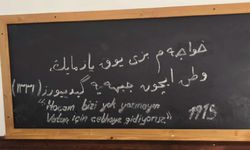 خواجه م بزى يوق يازمايڭ،
وطن ايچون جبهه يه گيدييورز (١٣٣١)
"Hocam bizi yok yazmayın
Vatan için cebheye gidiyoruz" 1915